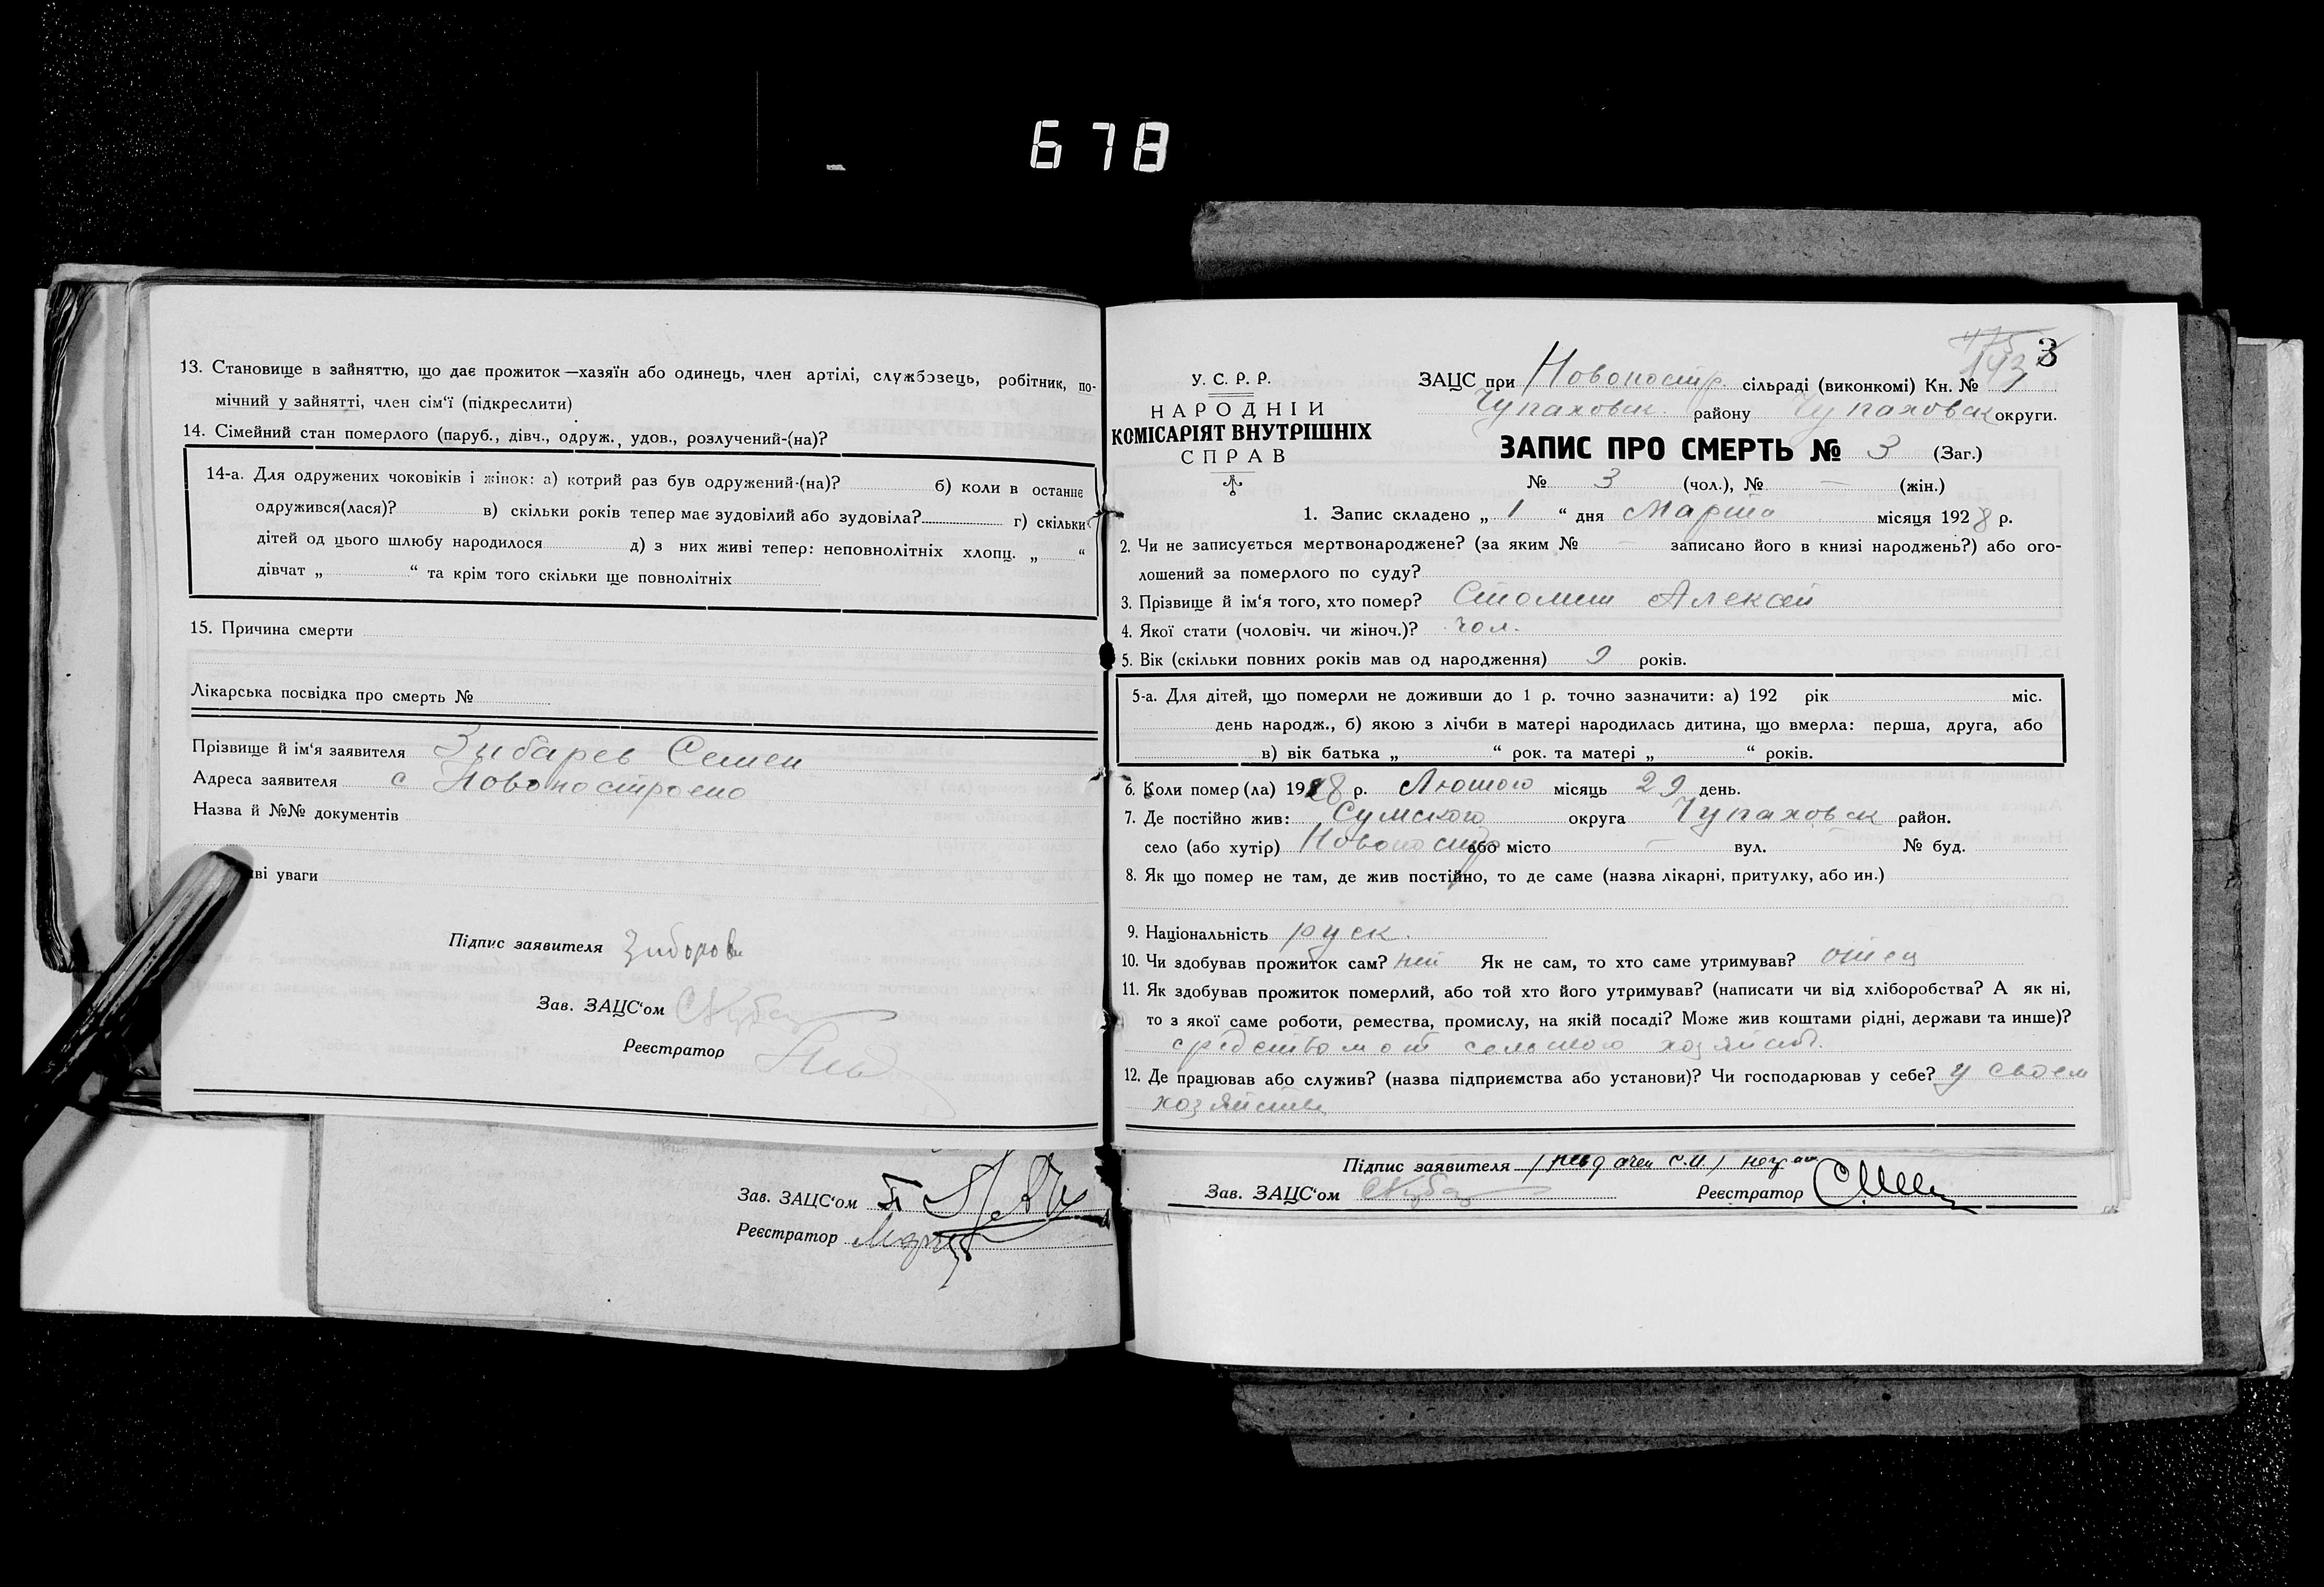 678
13. Становище в зайняттю, що дає прожиток—хазяїн або одинець, член артілі, службовець, робітник, по-
мічний у зайнятті, член сім'ї (підкреслити)
14. Сімейний стан померлого (паруб., дівч., одруж., удов., розлучений-(на)?
14-а. Для одружених чоковіків і жінок: а) котрий раз був одружений-(на)? б) коли в останнє
одружився(лася)? в) скільки років тепер має зудовілий або зудовіла? г) скільки
дітей од цього шлюбу народилося д) з них живі тепер: неповнолітніх хлопц. „ “
дівчат „ “ та крім того скільки ще повнолітніх
15. Причина смерти
Лікарська посвідка про смерть №
Прізвище й ім'я заявителя Зибарев Семен
Адреса заявителя с Новопостроено
Назва й №№ документів
ві уваги
Підпис заявителя
Зав. ЗАЦС'ом
Реєстратор
Зав. ЗАЦС'ом
Реєстратор
3
У. С. Р. Р.
НАРОДНІЙ
КОМІСАРІЯТ ВНУТРІШНІХ
СПРАВ
ЗАЦС при Новопостр. сільраді (виконкомі) Кн. № 1
Чупаховск. району Чупаховск округи.
ЗАПИС ПРО СМЕРТЬ № 3 (Заг.)
№ 3 (чол.), № — (жін.)
1. Запис складено „ 1 “ дня Марта місяця 1928 р.
2. Чи не записується мертвонароджене? (за яким № — записано його в книзі народжень?) або ого-
лошений за померлого по суду?
3. Прізвище й ім'я того, хто помер? Алексей
4. Якої стати (чоловіч. чи жіноч.)? чол.
5. Вік (скільки повних років мав од народження) 9 років.
5-а. Для дітей, що померли не доживши до 1 р. точно зазначити: а) 192 рік міс.
день народж., б) якою з лічби в матері народилась дитина, що вмерла: перша, друга, або
в) вік батька „ “ рок. та матері „ “ років.
6. Коли помер (ла) 1928 р. Лютого місяць 29 день.
7. Де постійно жив: Сумского округа Чупаховск район.
село (або хутір) Новопостр або місто — вул. № буд.
8. Як що помер не там, де жив постійно, то де саме (назва лікарні, притулку, або ин.)
9. Національність руск.
10. Чи здобував прожиток сам? нет Як не сам, то хто саме утримував? отец
11. Як здобував прожиток померлий, або той хто його утримував? (написати чи від хліборобства? А як ні,
то з якої саме роботи, ремества, промислу, на якій посаді? Може жив коштами рідні, держави та инше)?
средством от сельского хозяйств.
12. Де працював або служив? (назва підприємства або установи)? Чи господарював у себе? у своем
хозяйстве
Підпис заявителя
Зав. ЗАЦС'ом Реєстратор